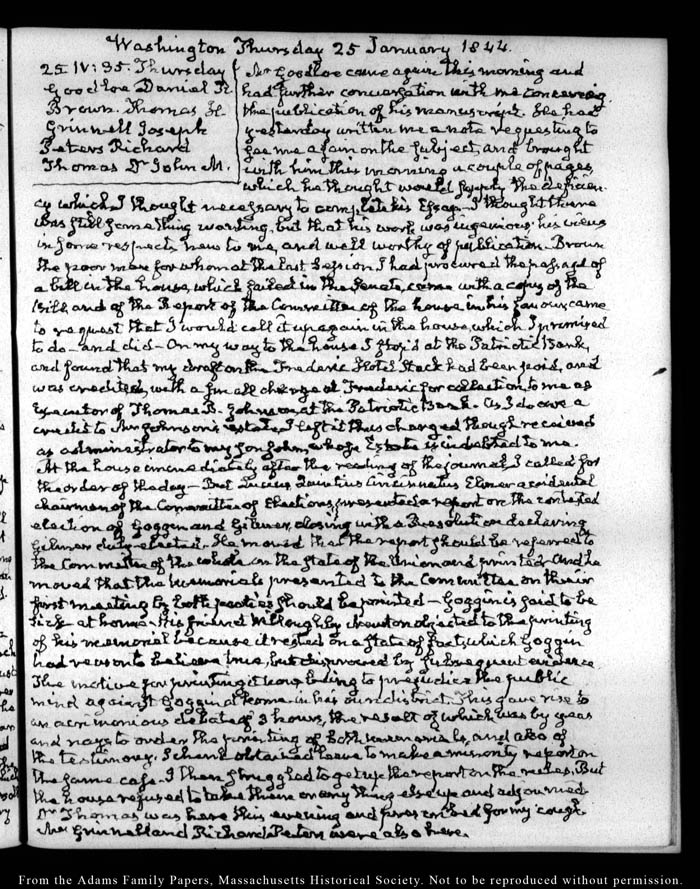 Washington Thursday 25 January 1844.
25. IV:35. Thursday
Goodloe Daniel R
Brown. Thomas H
Grinnell Joseph
Peters Richard
Thomas Dr John M.
Mr Goodloe came again this morning and
had further conversation with me concerning
the publication of his manuscript. He had
yesterday written me a note requesting to
see me again on the subject, and brought
with him this morning a couple of pages
which he thought would supply the deficien-
cy which I thought necessary to complete his Essay. I thought there
was still something wanting, but that his work was ingenious, his views
in some respects new to me, and well worthy of publication. Brown
the poor man for whom at the last Session I had procured the passage of
a bill in the house, which failed in the Senate, came with a copy of the
Bill, and of the Report of the Committee of the house in his favour, came
to request that I would call it up again in the house, which I promised
to do – and did – On my way to the house I stop'd at the Patriotic Bank,
and found that my draft on the Frederic Hotel Stock had been paid, and
was credited, with a small charge at Frederic for collection, to me as
Executor of Thomas B. Johnson, at the Patriotic Bank. As I do owe a
credit to Mr Johnson's estate, I left it thus charged though received
as administrator to my son John, whose Estate is indebted to me.
At the house immediately after the reading of the journal, I called for
the order of the day – But Lucius Quintius Cincinnatus Elmer accidental
chairman of the Committee of Elections, presented a report on the contested
election of Goggin and Gilmer, closing with a Resolution declaring
Gilmer duly elected. He moved that the report should be referred to
the Committee of the whole on the state of the Union and printed. And he
moved that the memorials presented to the Committee on their
first meeting by both parties should be printed – Goggin is said to be
sick at home. His friend Willoughby Newton objected to the printing
of his memorial because it rested on a state of fact, which Goggin
had reason to believe true, but disproved by subsequent evidence
The motive for printing it being to prejudice the public
mind against Goggin at home in his own district. This gave rise to
an acrimonious debate of 3 hours, the result of which was by yeas
and nays to order the printing of both memorials, and also of
the testimony. Schenck obtained leave to make a minority report on
the same case. I then struggled to get up the report on the rules, But
the house refused to take them or any thing else up and adjourned.
Dr Thomas was here this evening and prescribed for my cough
Mr Grinnell and Richard Peters were also here.
From the Adams Family Papers, Massachusetts Historical Society. Not to be reproduced without permission.